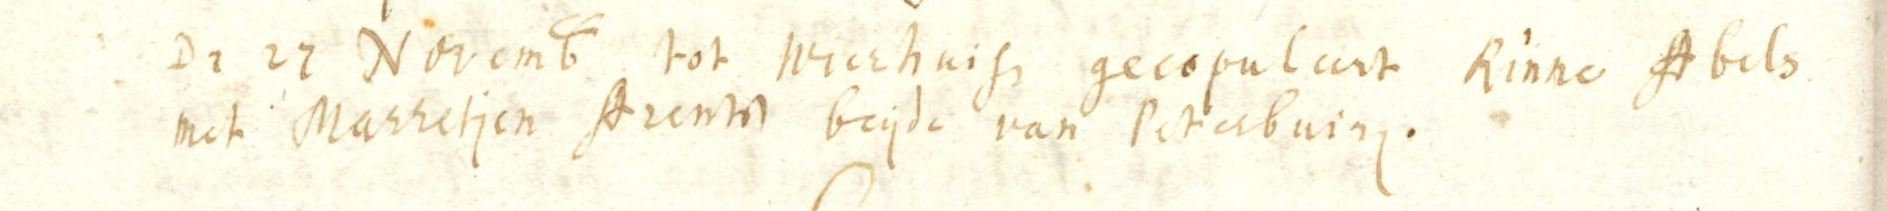 De 27 Novemb tot Wierhuijs gecopuleert Rinne Abels
met Marretjen Arents beijde van Pieterbuiren.